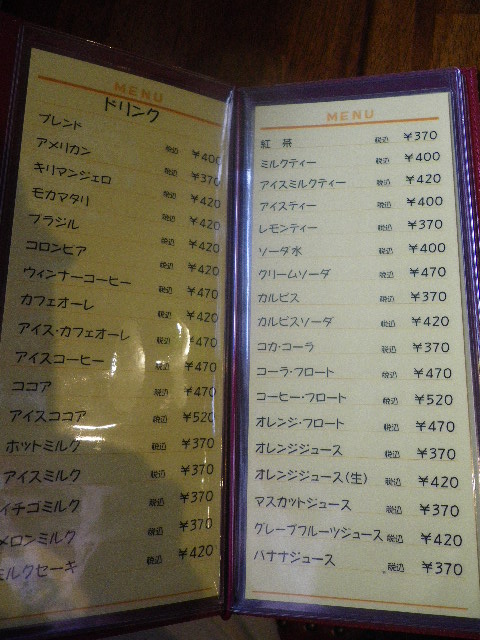 MENU
ドリンク
ブレンド 税込 ¥400
アメリカン 税込 ¥370
キリマンジェロ 税込 ¥420
モカマタリ 税込 ¥420
ブラジル 税込 ¥420
コロンビア 税込 ¥420
ウィンナーコーヒー 税込 ¥470
カフェオーレ 税込 ¥420
アイス・カフェオーレ 税込 ¥470
アイスコーヒー 税込 ¥470
ココア 税込 ¥470
アイスココア 税込 ¥520
ホットミルク 税込 ¥370
アイスミルク 税込 ¥370
イチゴミルク 税込 ¥370
メロンミルク 税込 ¥370
ミルクセーキ 税込 ¥420
MENU
紅 茶 税込 ¥370
ミルクティー 税込 ¥400
アイスミルクティー 税込 ¥420
アイスティー 税込 ¥400
レモンティー 税込 ¥370
ソーダ水 税込 ¥400
クリームソーダ 税込 ¥470
カルピス 税込 ¥370
カルピスソーダ 税込 ¥420
コカ・コーラ 税込 ¥370
コーラ・フロート 税込 ¥470
コーヒー・フロート 税込 ¥520
オレンジ・フロート 税込 ¥470
オレンジジュース 税込 ¥370
オレンジジュース(生) 税込 ¥420
マスカットジュース 税込 ¥370
グレープフルーツジュース 税込 ¥420
バナナジュース 税込 ¥370